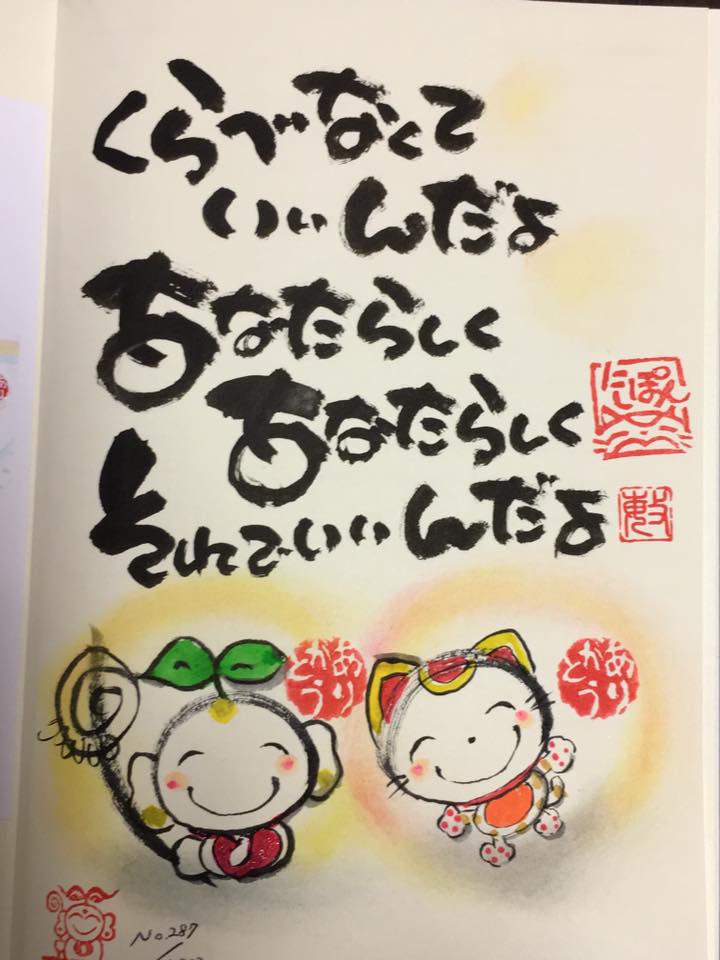 くらべなくて
いいんだよ
あなたらしく
あなたらしく
それでいいんだよ
にっぽん
ありがとう
ありがとう
No.287